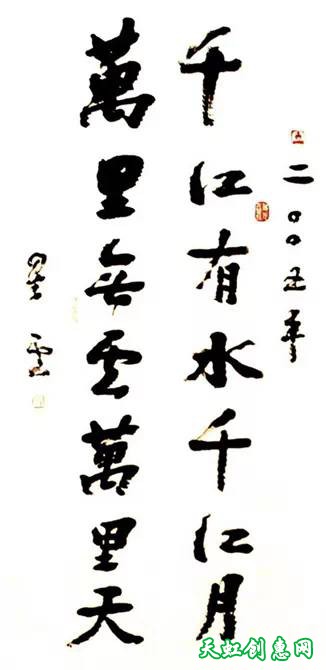 二〇〇五年
千江有水千江月
萬里無雲萬里天
星雲
天虹创惠网